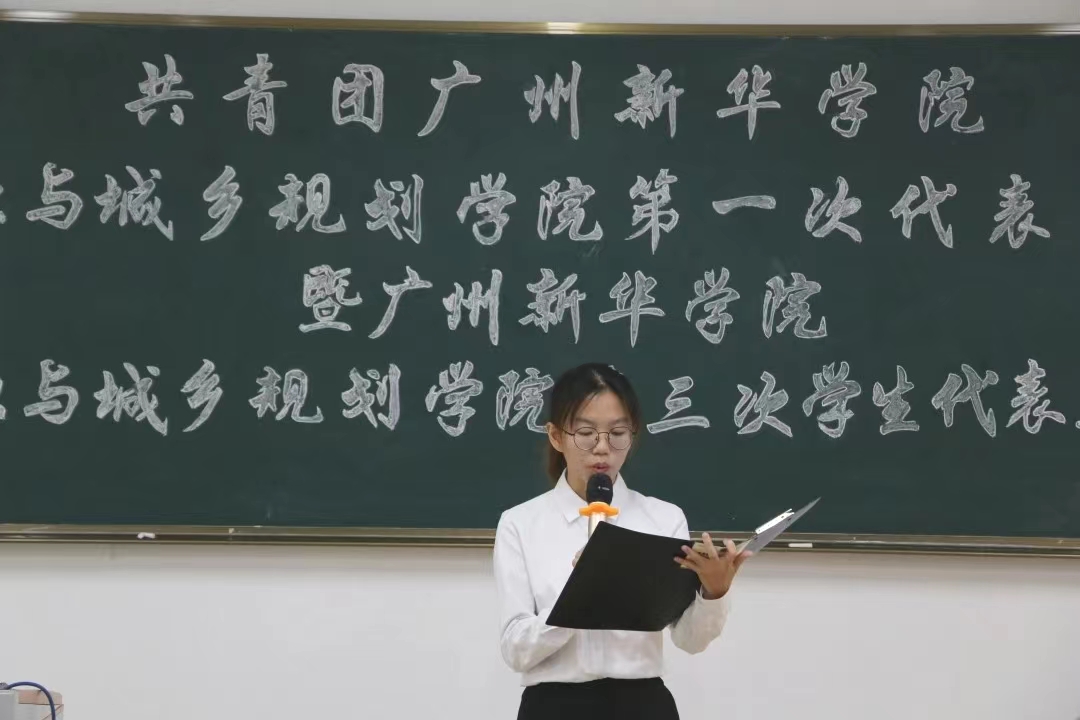 共青团广州新华学院
与城乡规划学院第一次代表
暨广州新华学院
与城乡规划学院三次学生代表